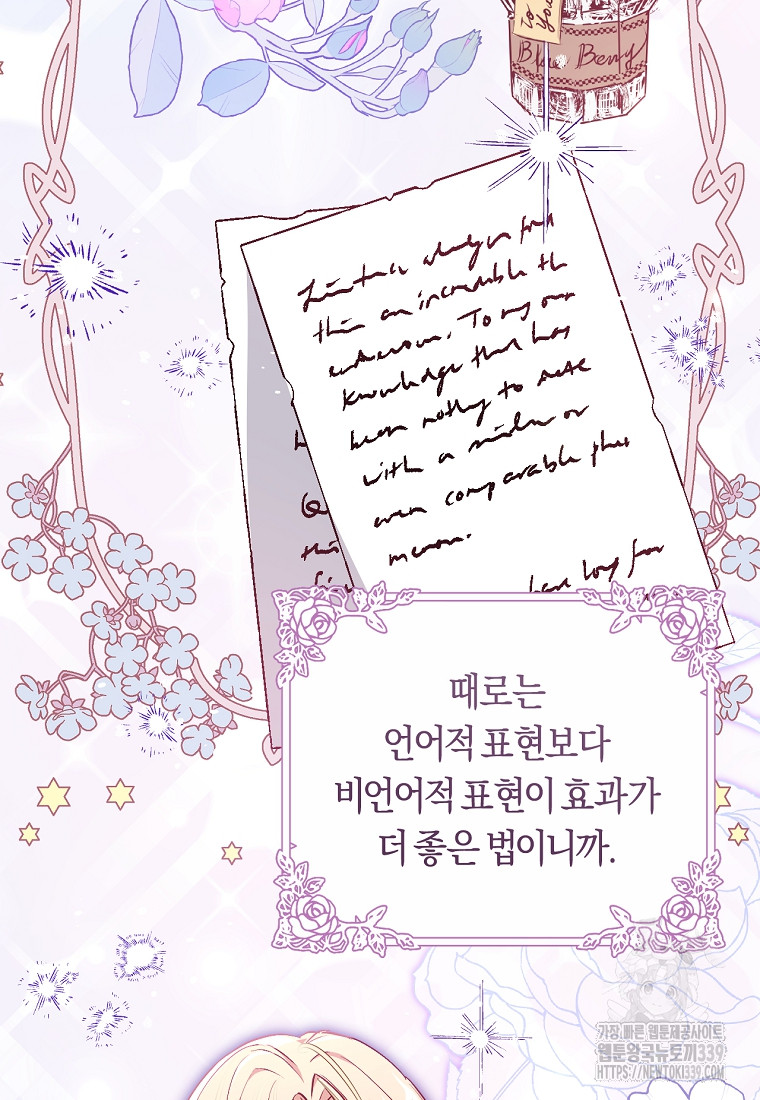 To
You
Blue Berry
this an incredible th
To my own
knowledge that has
been nothing to
with a similar or
even comparable phe
menon.
Q
thi
have long for
때로는
언어적 표현보다
비언어적 표현이 효과가
더 좋은 법이니까.
가장.빠른 웹툰제공사이트
웹툰왕국뉴토끼339
HTTPS://NEWTOKI339.COM